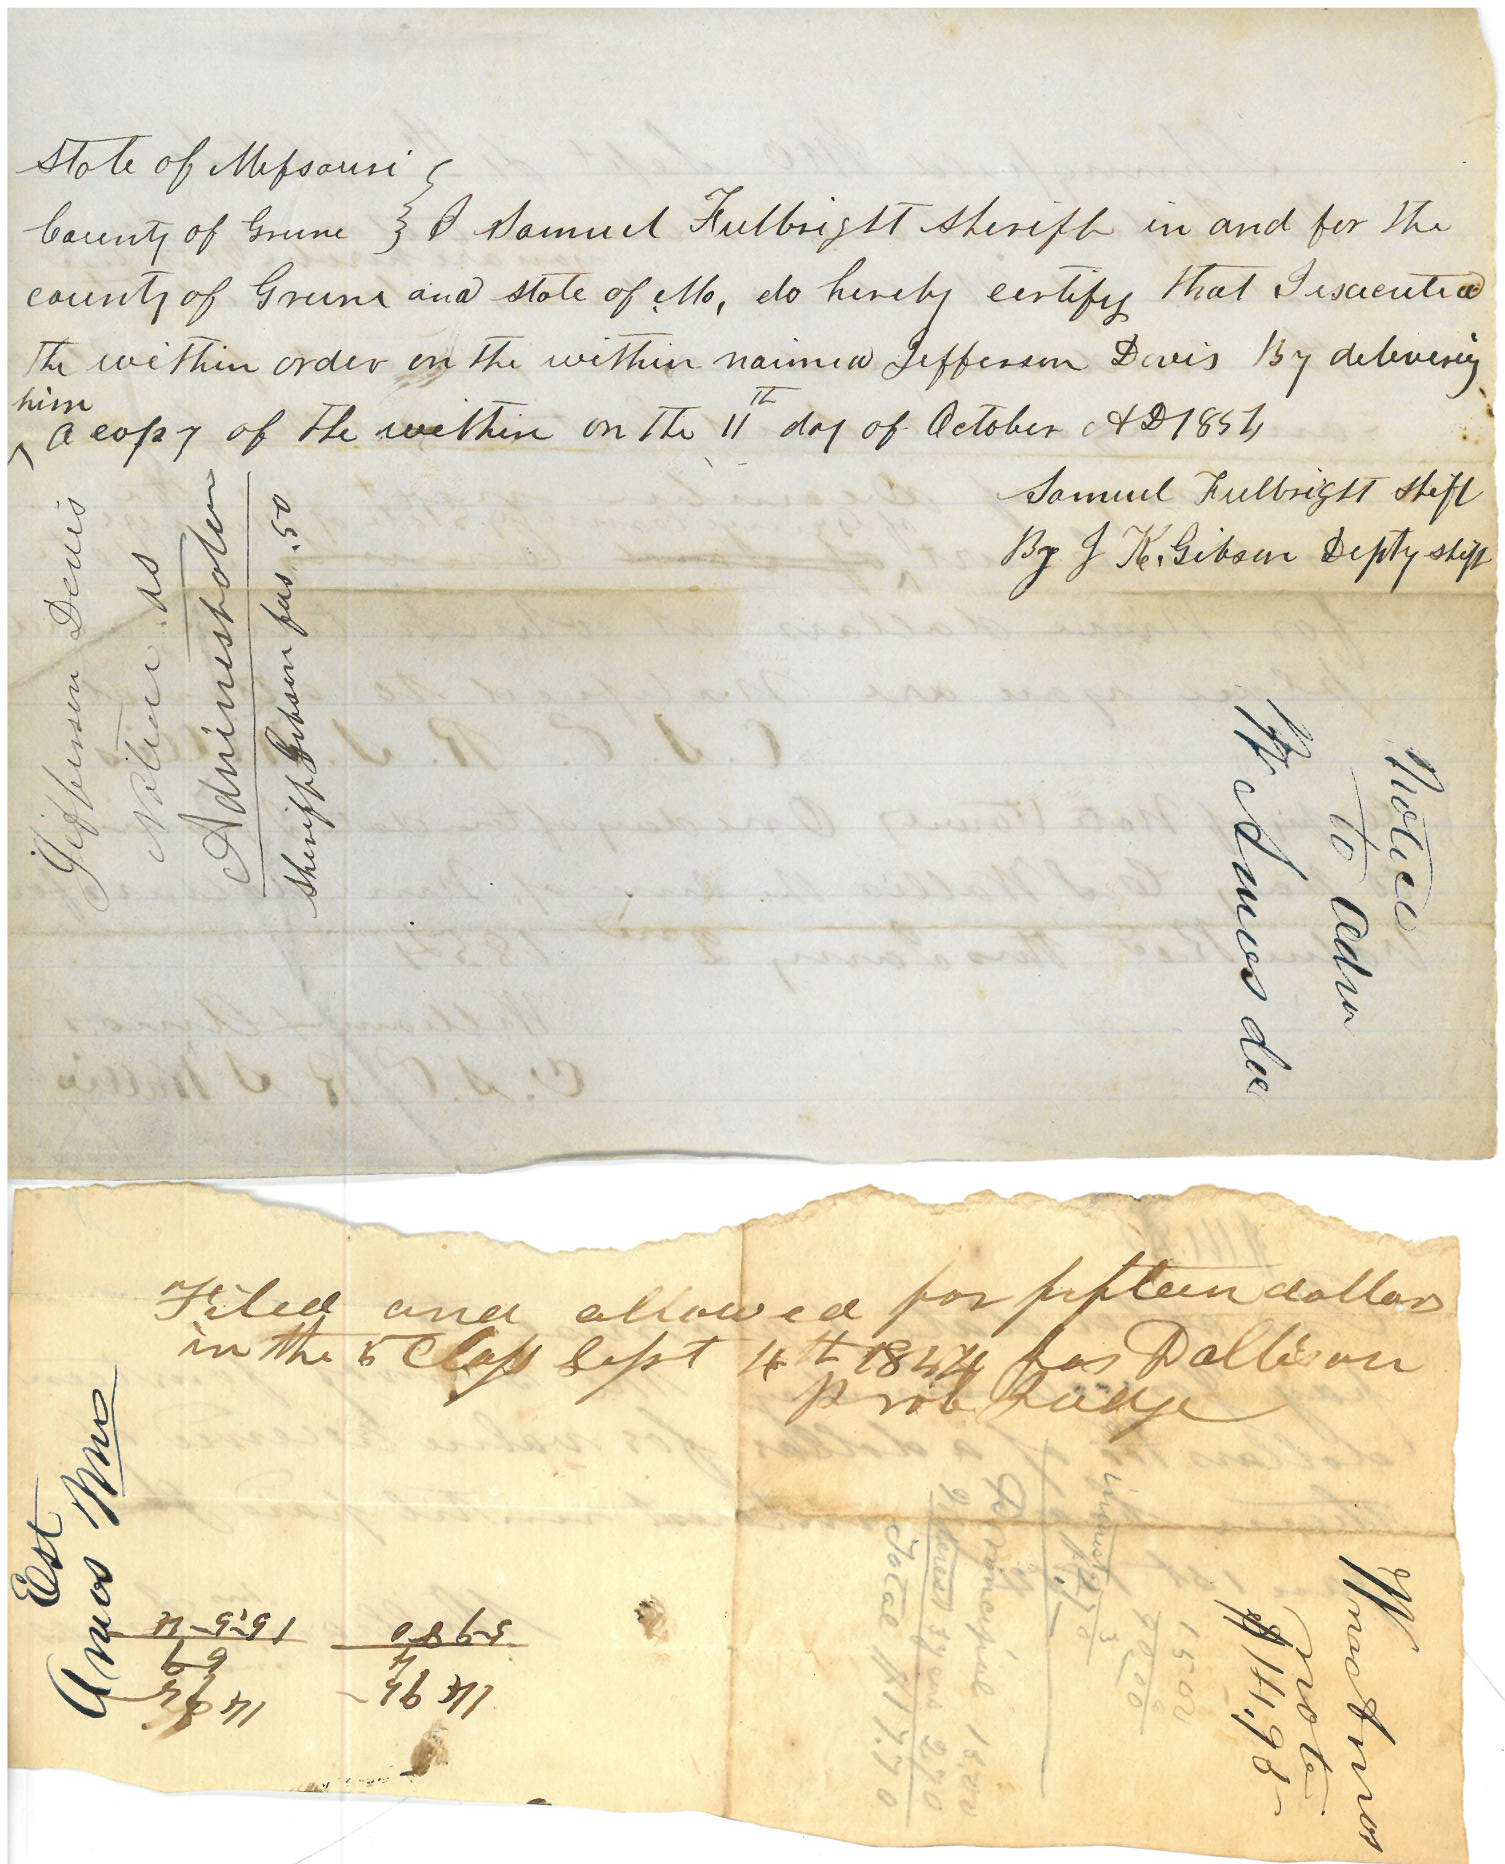 State of Missouri }
County of Greene } I Samuel Fulbright Sheriff in and for the
county of Greene and state of Mo, do hereby certify that I executed
the within order on the within naimed Jefferson Davis By delivering
him
^ a copy of the within on the 11th day of October AD 1854
Samuel Fulbright Shff
By J K. Gibson Depty shff
Jefferson Davis
Notice as
Administrator
Sheriff Gibson fees .50
Notice
to Admr
Wm Amos dec
Filed and allowed for fifteen dollars
in the 5 Class Sept 4th 1854 Jos D Allison
Prob Judge
Est
Amos Wm
14 95
4
5980
Wm Amos
note
$14,98
15.00
3
Principal 15.00
Interest 3 years 2.70
Total $17.70